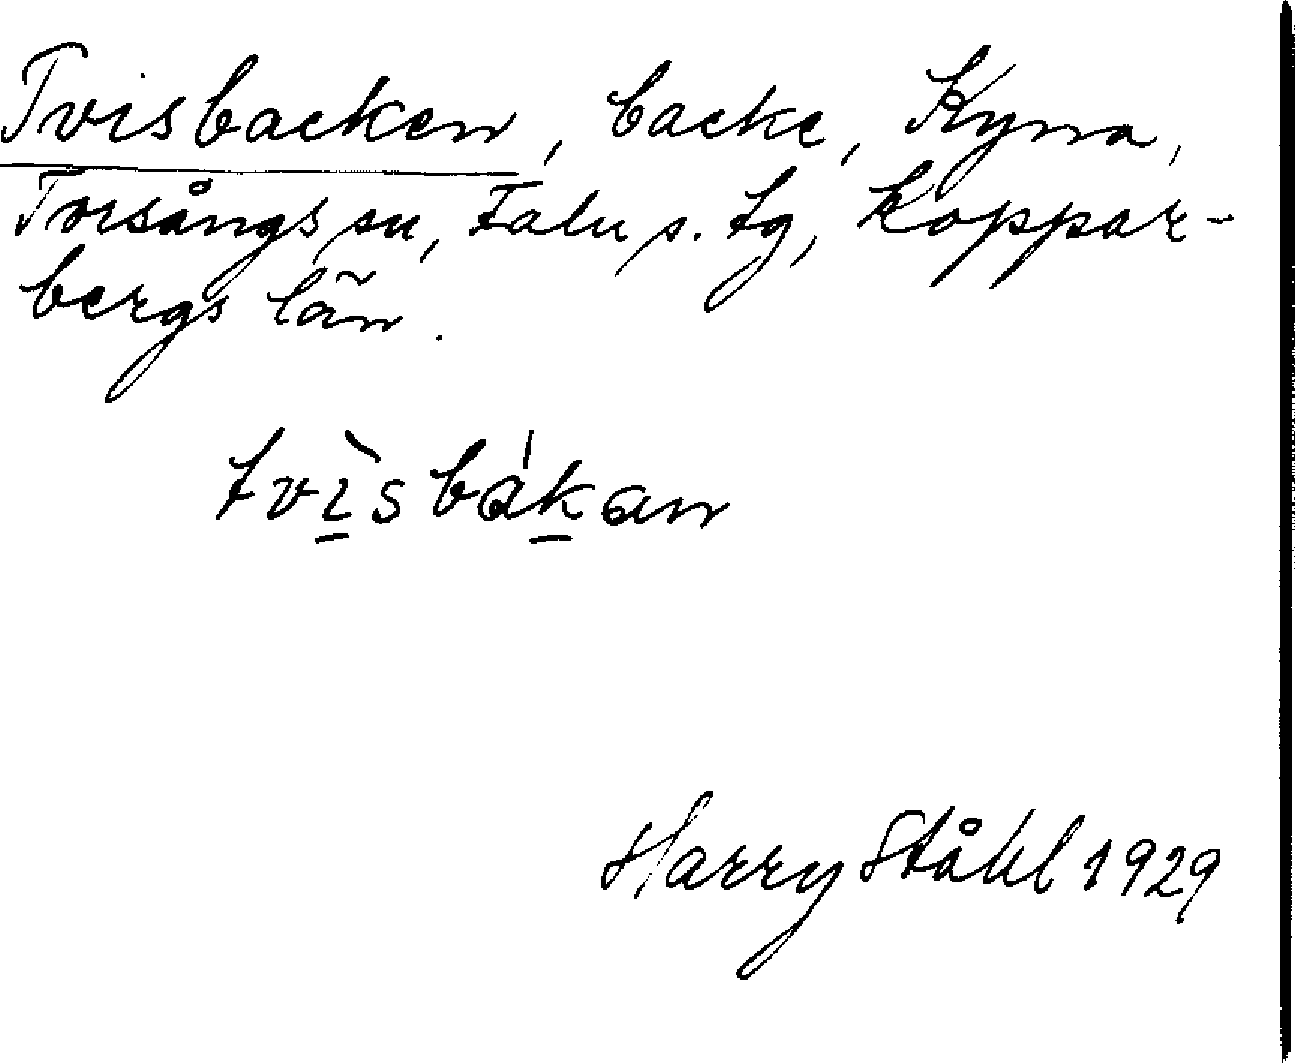 Tvisbacken, backe, Kyna,
Torsångs sn, Falu s. tg, Koppar-
bergs län.
tvì̱sbáḵan
Harry Ståhl 1929